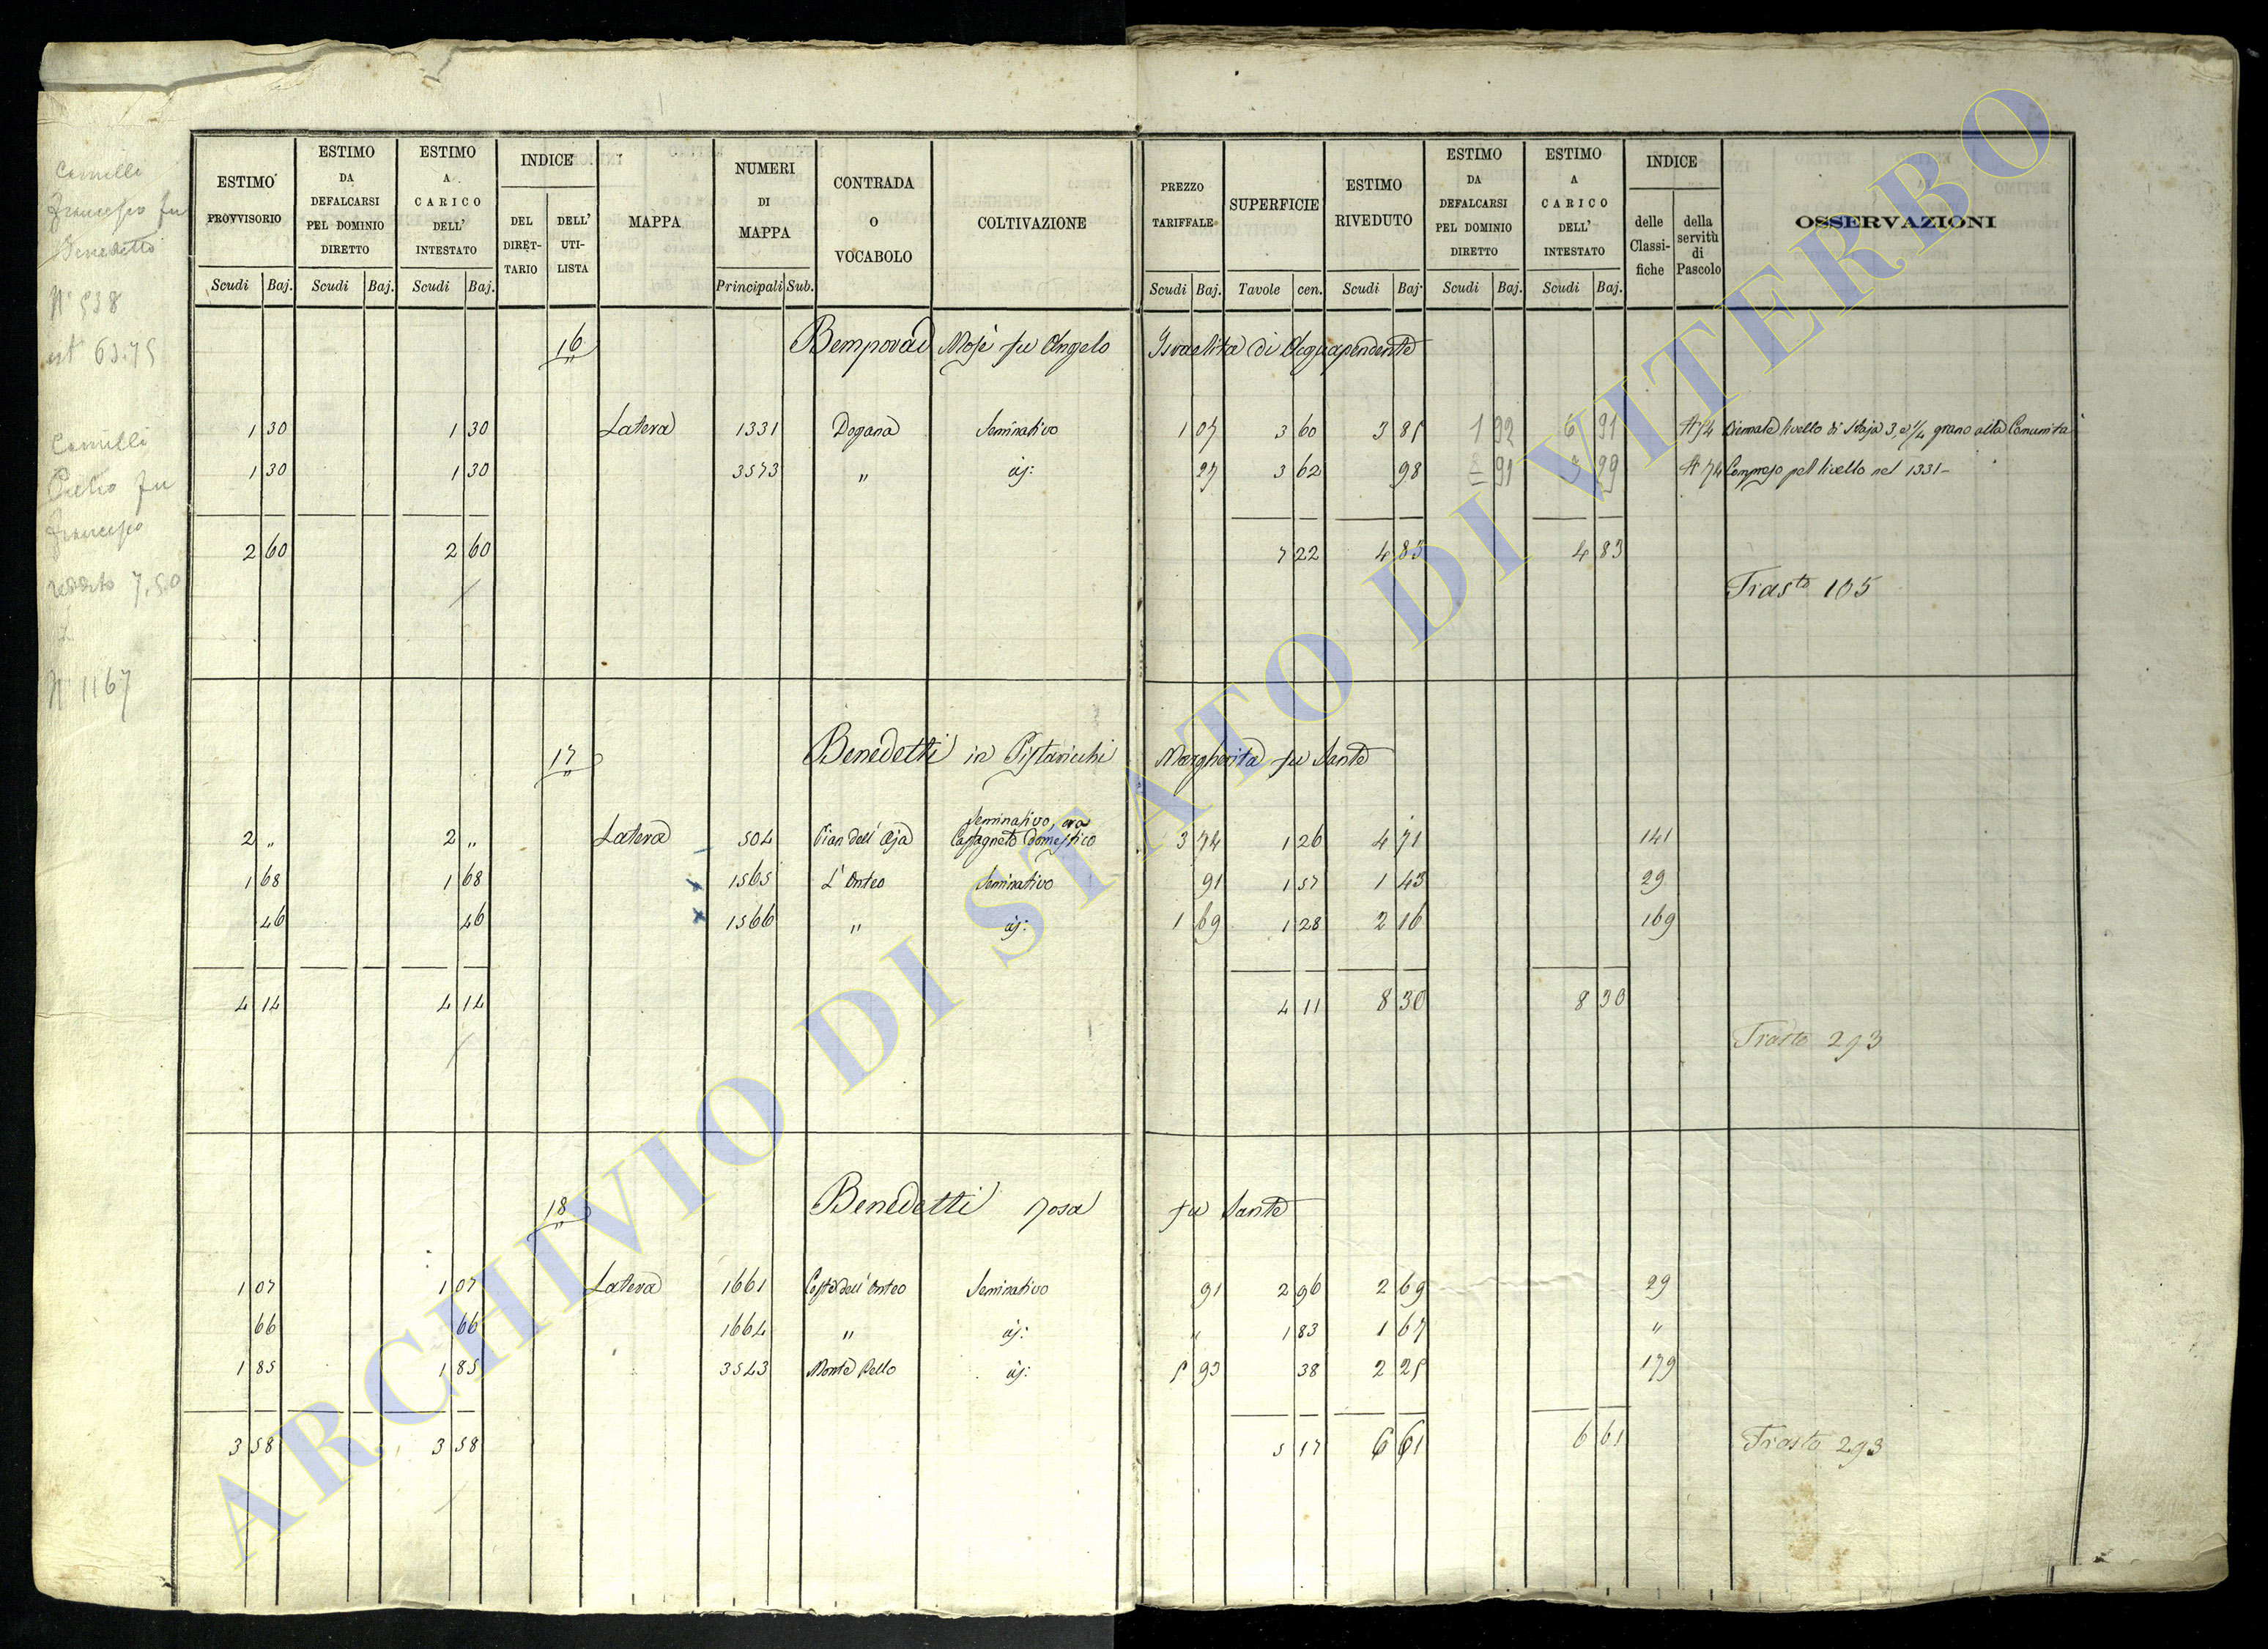 ESTIMO PROVVISORIO Scudi Baj.
ESTIMO DA DEFALCARSI PEL DOMINIO DIRETTO Scudi Baj.
ESTIMO A CARICO DELL' INTESTATO Scudi Baj.
INDICE DEL DIRETTARIO DELL' UTILISTA
MAPPA
NUMERI DI MAPPA Principali Sub.
CONTRADA O VOCABOLO
COLTIVAZIONE
PREZZO TARIFFALE Scudi Baj.
SUPERFICIE Tavole cen.
ESTIMO RIVEDUTO Scudi Baj.
ESTIMO DA DEFALCARSI PEL DOMINIO DIRETTO Scudi Baj.
ESTIMO A CARICO DELL' INTESTATO Scudi Baj.
INDICE delle Classifiche della servitù di Pascolo
OSSERVAZIONI
Camilli
Francesco fu
Benedetto
N° 538
est 63.75
Camilli
Pietro fu
Francesco
reddito 7,50
N° 1167
16 Bemporad Mosè fu Angelo Israelita di Acquapendente
1 30 1 30 Latera 1331 Dogana Seminativo 1 07 3 60 3 85 1 92 6 91 A 74 Biennale livello di Staja 3, e 1/4 grano alla Comunità
1 30 1 30 3573 " id: 27 3 62 98 91 3 99 A 74 Compreso pel livello nel 1331
2 60 2 60 7 22 4 83 4 83
Trasto 105
17 Benedetti in Pistaricchi Margherita fu Sante
2 " 2 " Latera 504 Pian dell' Aja Seminativo, ora Castagneto domestico 3 74 1 26 4 71 141
1 68 1 68 1565 L' Onteo Seminativo 91 1 57 1 43 29
46 46 1566 " id: 1 69 1 28 2 16 169
4 14 4 14 4 11 8 30 8 30
Trasto 293
18 Benedetti Rosa fu Sante
1 07 1 07 Latera 1661 Costa dell' Onteo Seminativo 91 2 96 2 69 29
66 66 1664 " id: " 1 83 1 67 "
1 85 1 85 3543 Monte Rello id: 5 93 38 2 25 179
3 58 3 58 5 17 6 61 6 61
Trasto 293
ARCHIVIO DI STATO DI VITERBO